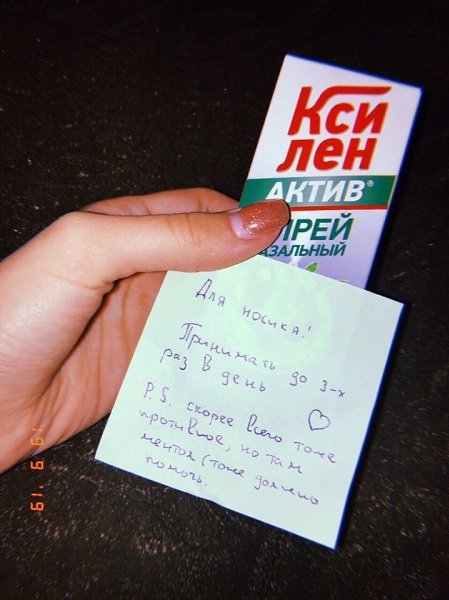 Кси
лен
АКТИВ®
СПРЕЙ
НАЗАЛЬНЫЙ
Для носика!
Принимать до 3-х
раз в день
♡
P.S. скорее всего тоже
противное, но там
ментол (тоже должно
помочь.
19 9 '19